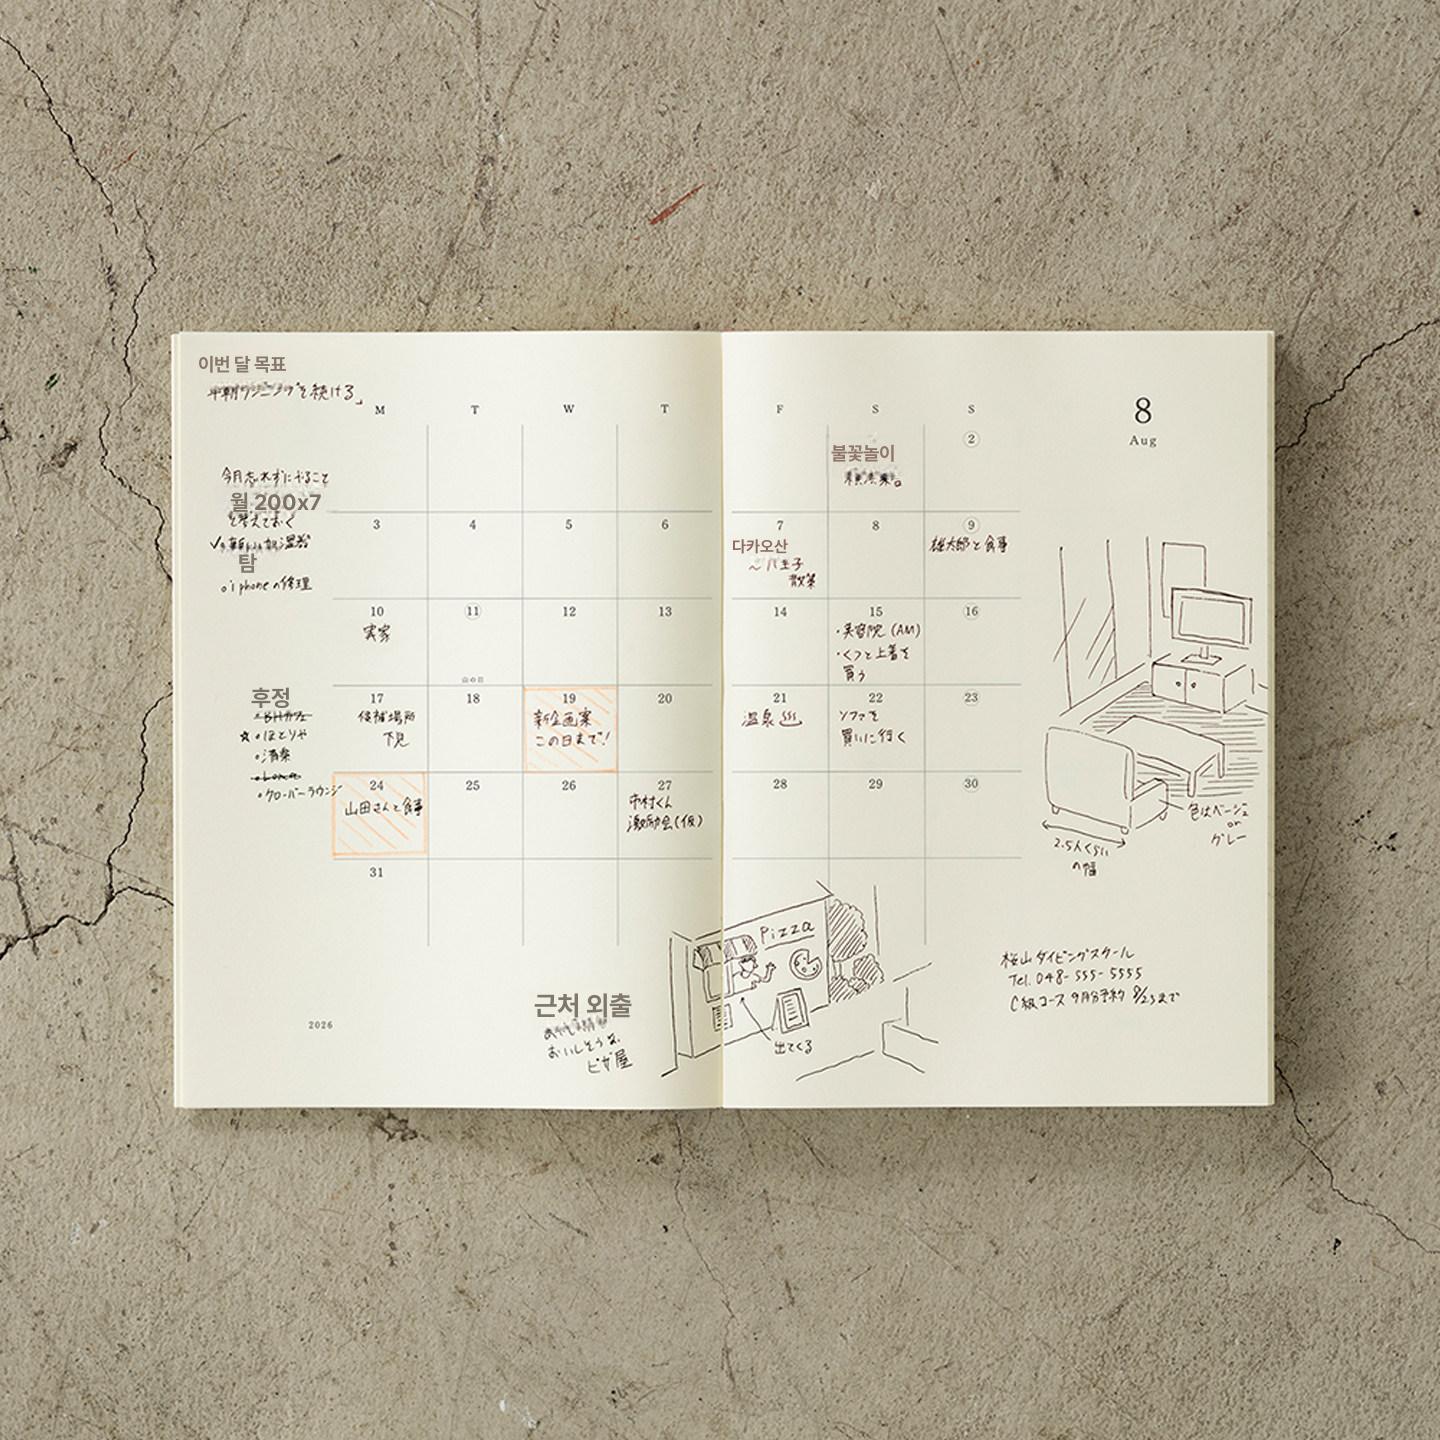 이번 달 목표
早朝ランニングを続ける
8
Aug
M T W T F S S
今月忘れずにやること
월 200x7
を考えておく
✓新しい加湿器
탐
○iphoneの修理
2
불꽃놀이
横浜東。
3 4 5 6 7 8 9
다카오산
〜八王子
散策
雄太郎と食事
10 11 12 13 14 15 16
実家
山の日
・美容院(AM)
・くつと上着を
買う
후정
17 18 19 20 21 22 23
候補場所
下見
新企画案
この日まで!
温泉
ソファを
買いに行く
・BHカフェ
☆・ほとりや
・清粲
・クローバーラウンジ
24 25 26 27 28 29 30
山田さんと食事
市村くん
激励会(仮)
31
色はベージュ
or
グレー
2.5人くらい
の幅
Pizza
出てくる
근처 외출
おいしそうな
ピザ屋
桜山ダイビングスクール
Tel. 048-555-5555
C級コース 9月分予約 8/23まで
2026